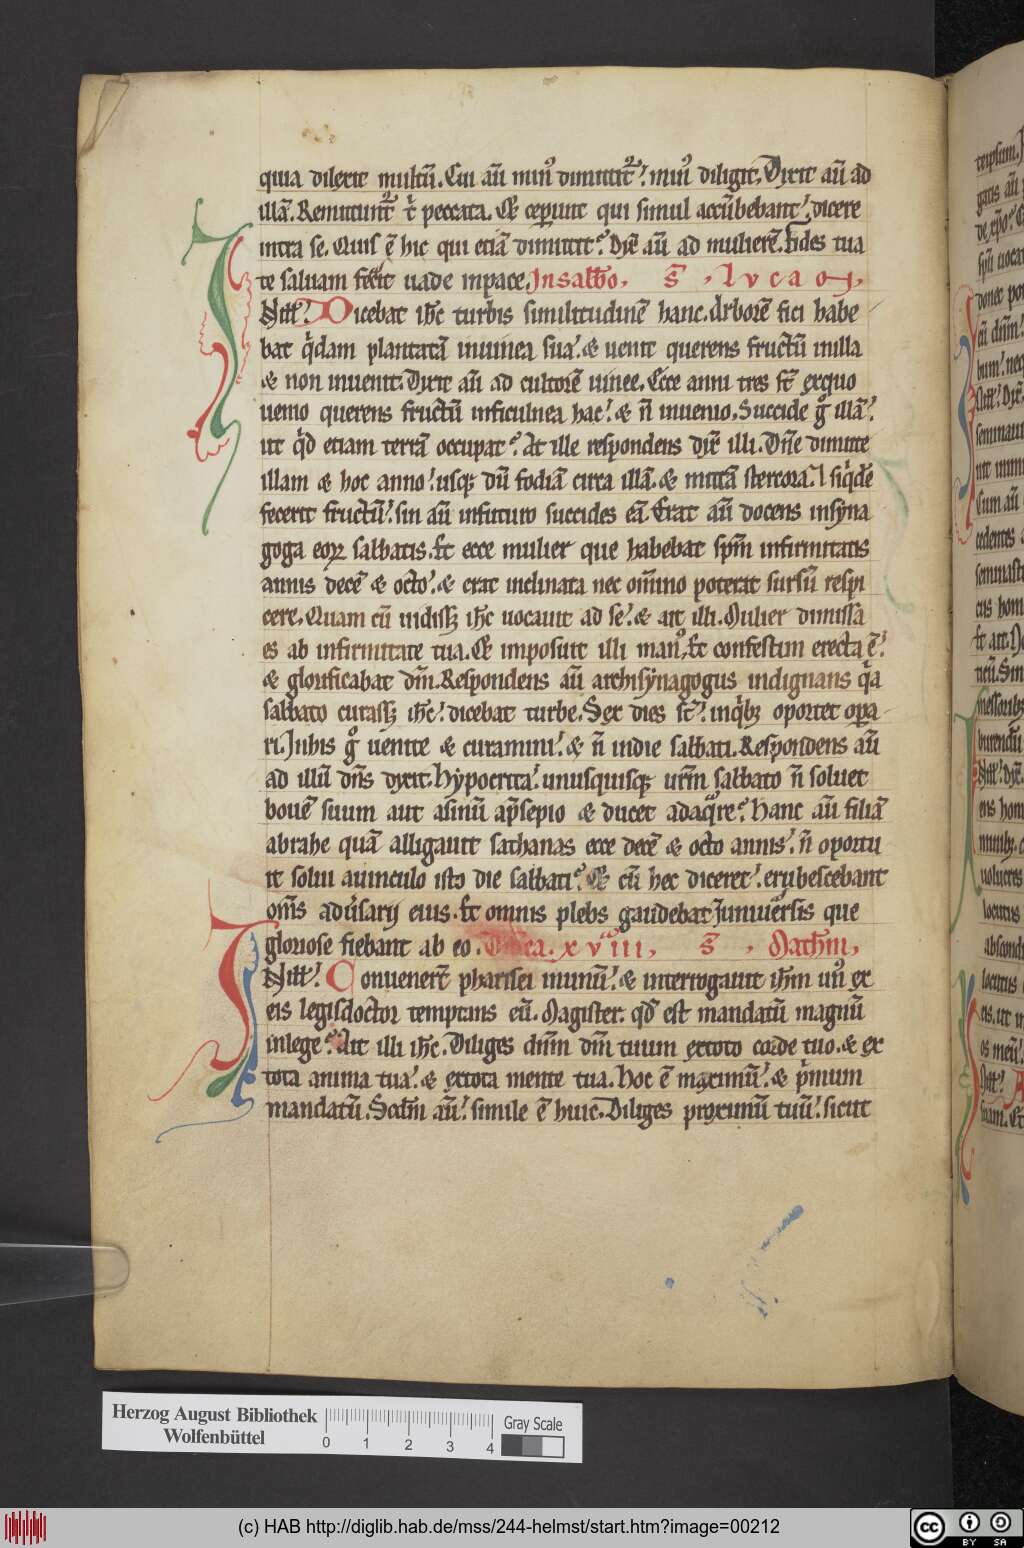 quia dilexit multū. Cui aū minꝰ dimittit᷑. minꝰ diligit. Dixit aū ad
illā. Remittunt᷑ t̄ peccata. Et ceperunt qui simul accūbebant. dicere
intra se. Quis ē hic qui etiā dimittit. Dix̄ aū ad mulierē. Fides tua
te saluam fecit uade inpace. In sabb̄o. S̄. Lucam.
In illˀ. Dicebat ih̄c turbis similitudinē hanc. Arborē fici habe
bat q̄dam plantatā inuinea sua. & uenit querens fructū inilla
& non inuenit. Dixit aū ad cultorē uinee. Ecce anni tres sr̄ exquo
uenio querens fructū inficulnea hac. & n̄ inuenio. Succide gͦ illā.
ut q̄d etiam terrā occupat. At ille respondens dix̄ illi. Dn̄e dimitte
illam & hoc anno. usq; dū fodiā circa illā. & mittā stercora. & siq̄dē
fecerit fructū. sin aū infuturo succides eā. Erat aū docens insyna
goga eoꝝ sabbatis. Et ecce mulier que habebat sp̄m infirmitatis
annis decē & octo. & erat inclinata nec om̄ino poterat sursū respi
cere. Quam cū uidissꝫ ih̄c uocauit ad se. & ait illi. Mulier dimissa
es ab infirmitate tua. Et imposuit illi manꝰ. Et confestim erecta ē.
& glorificabat dm̄. Respondens aū archisynagogus indignans q̄a
sabbato curassꝫ ih̄c. dicebat turbe. Sex dies sr̄. inq̄bꝫ oportet opa
ri. In his gͦ uenite & curamini. & n̄ indie sabbati. Respondens aū
ad illū dn̄s dixit. Hypocrita. unusquisq; ur̄m sabbato n̄ soluet
bouē suum aut asinū ap̄sepio & ducet adaq̄re. Hanc aū filiā
abrahe quā alligauit sathanas ecce decē & octo annis. n̄ oportu
it solui auinculo isto die sabbati. Et cū hec diceret. erubescebant
om̄s adūsarij eius. Et omnis plebs gaudebat Inuniūersis que
gloriose fiebant ab eo. Dn̄ica. xviii. S̄. Math̄m.
In illˀ. Conuenerт̄ pharisei inunū. & interrogauit ih̄m unꝰ ex
eis legisdoctor temptans eū. Magister. qd̄ est mandatū magnū
inlege. Ait illi ih̄c. Diliges dn̄m dm̄ tuum extoto corde tuo. & ex
tota anima tua. & extota mente tua. Hoc ē maximū. & p̄mum
mandatū. Scdm̄ aū. simile ē huic. Diliges proximū tuū. sicut
Herzog August Bibliothek
Wolfenbüttel
0 1 2 3 4
Gray Scale
(c) HAB http://diglib.hab.de/mss/244-helmst/start.htm?image=00212
cc BY SA